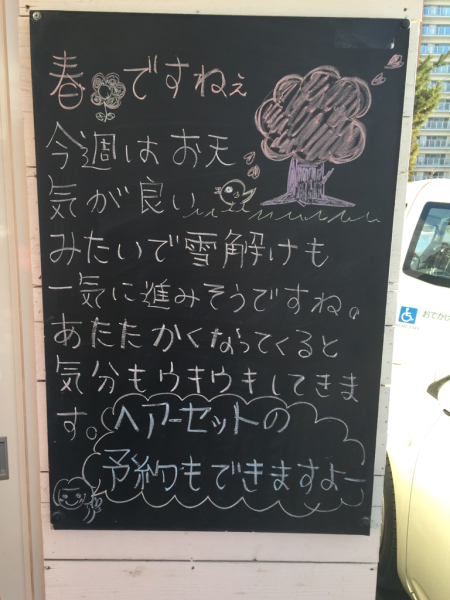 春ですねぇ
今週はお天
気が良い
みたいで雪解けも
一気に進みそうですね。
あたたかくなってくると
気分もウキウキしてきま
す。
ヘアーセットの
予約もできますよー
おでかけ